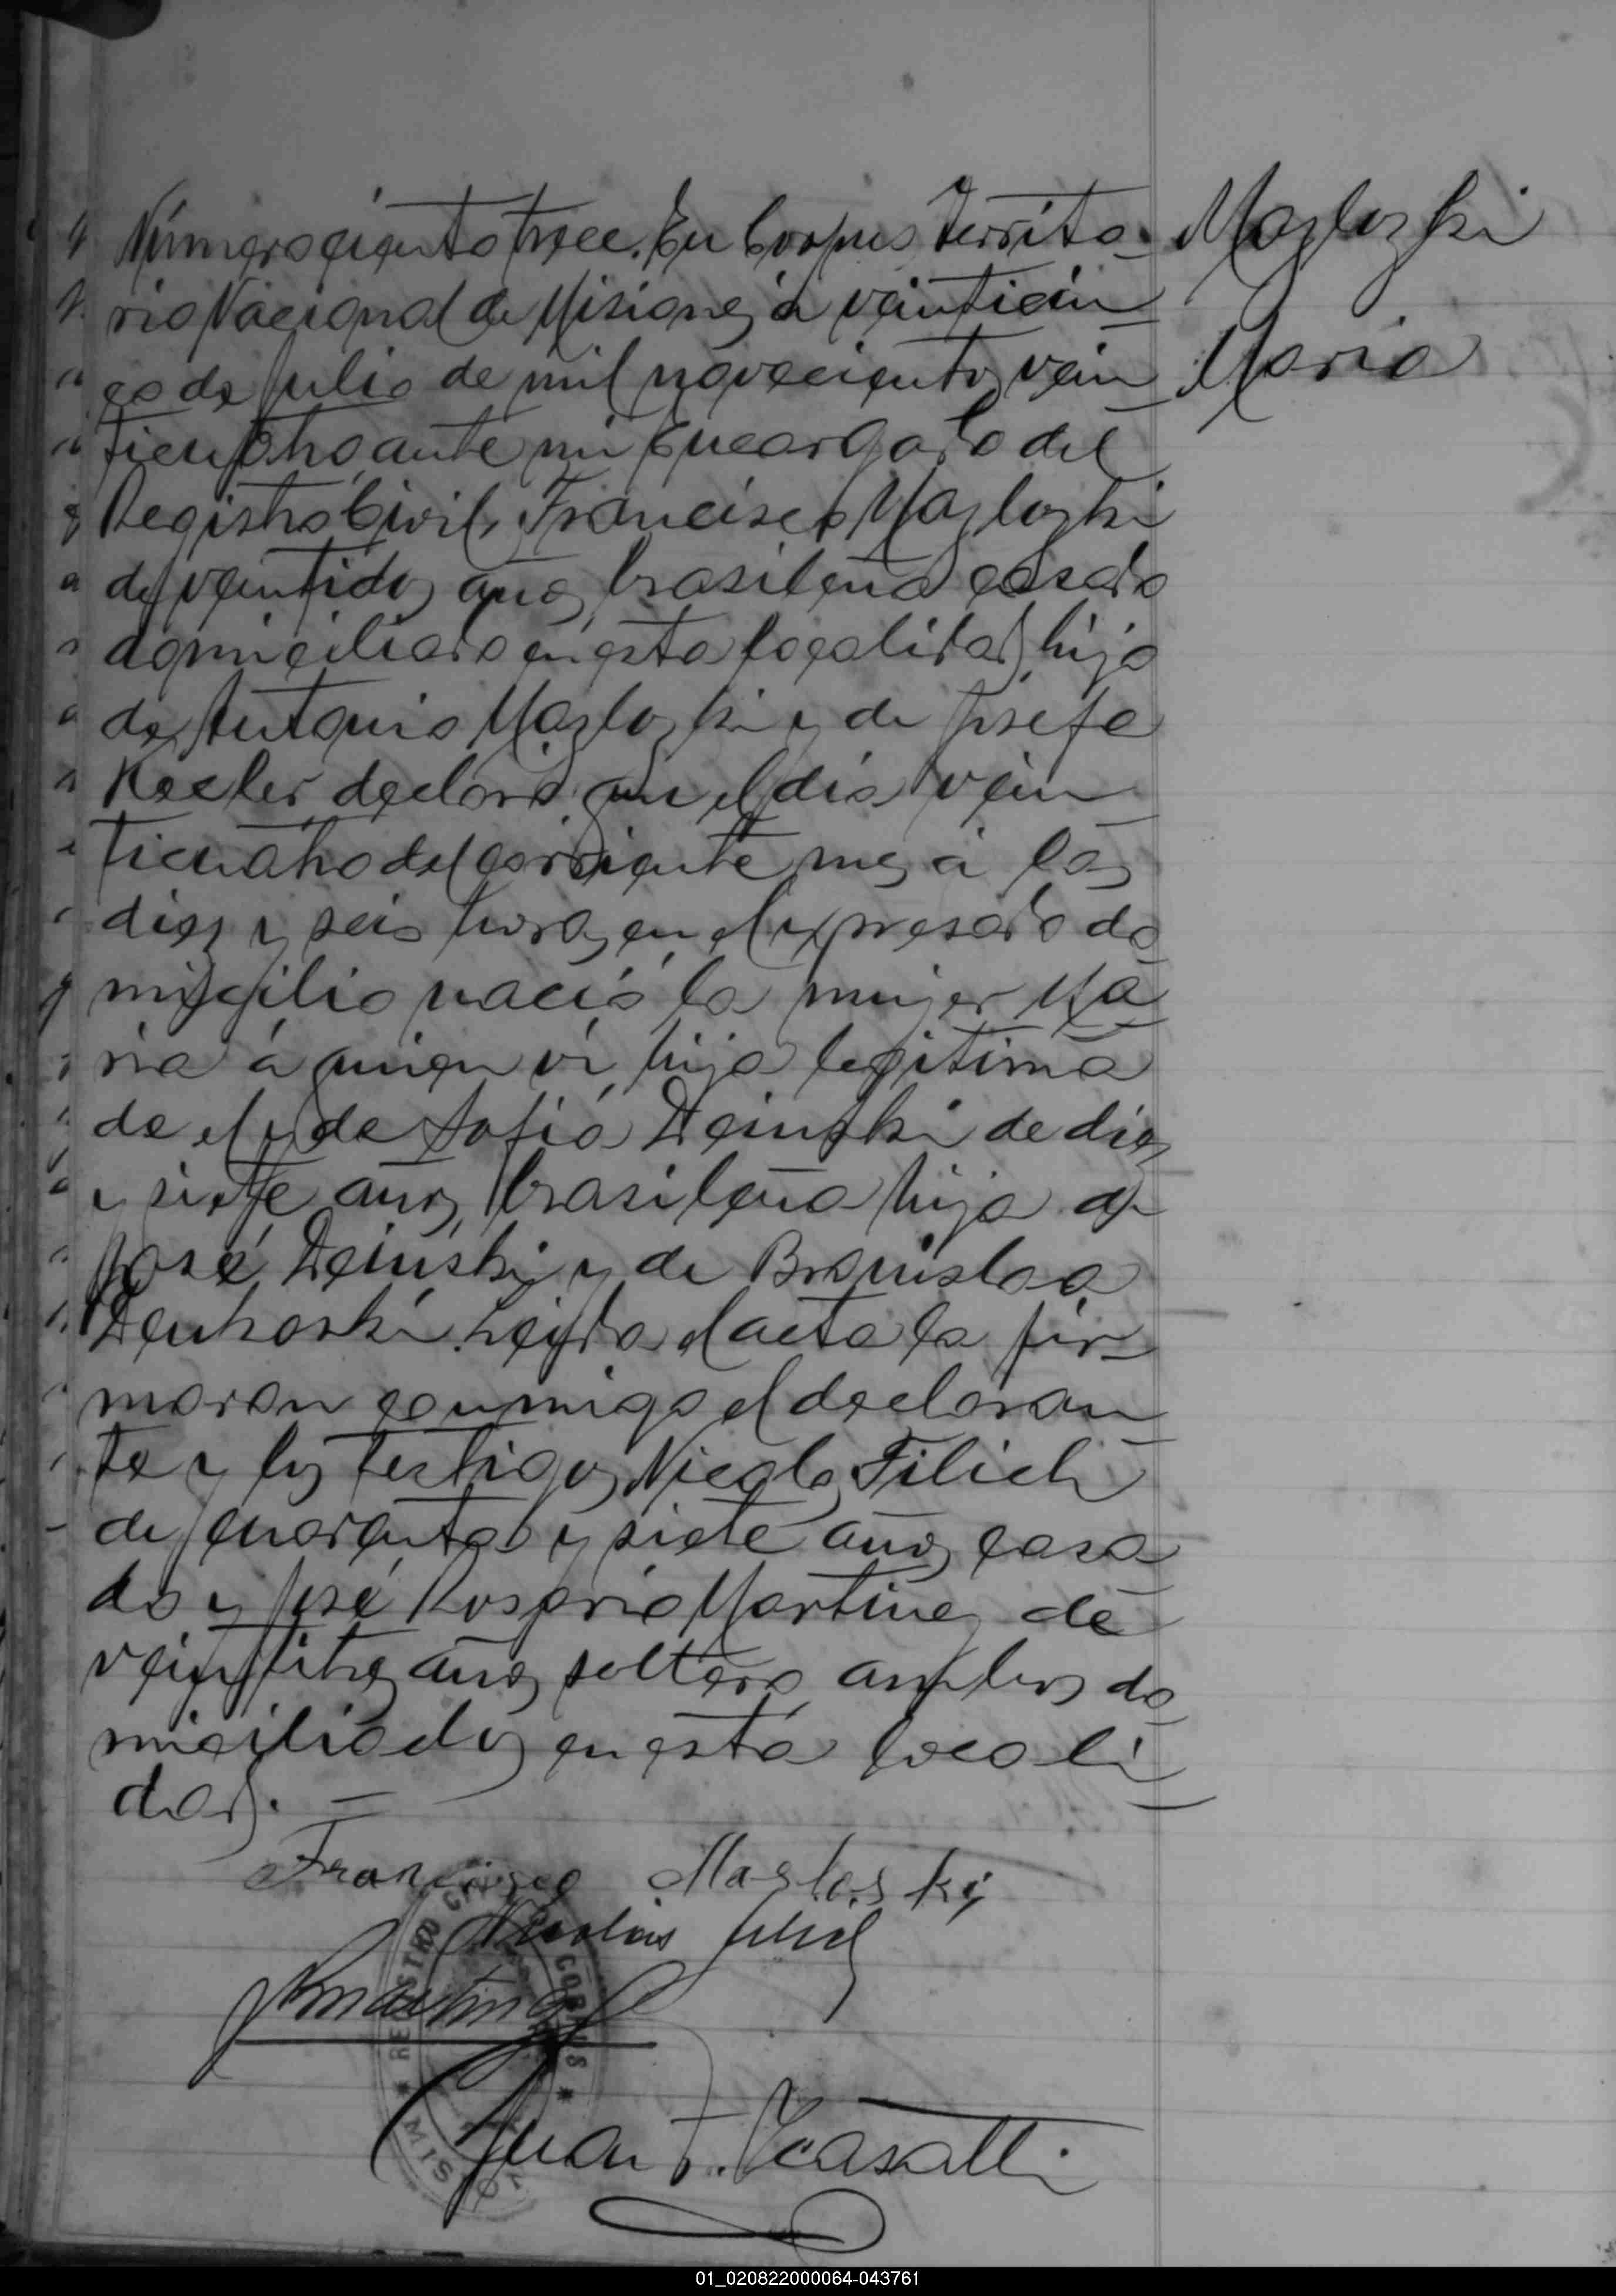 Número ciento trece. En Corpus, Territo-
Mazlozki
rio Nacional de Misiones, á veinticin-
María
co de Julio de mil novecientos vein-
ticuatro ante mi Encargado del
Registro Civil, Francisco Mazlozki
de veintidos años, brasileño casado
domiciliado en esta localidad, hijo
de Antonio Mazlozki y de Josefa
Keeler declaró que el día vein-
ticuatro del corriente mes á las
diez y seis horas, en el expresado do-
micilio nació la mujer Ma-
ria á quien vi hija legitima
de el y de Sofía Deinski de diez
y siete años, brasileña hija de
José Deinski y de Branislaa
Denkoski. Leída el acta la fir-
maron conmigo el declaran-
te y los testigos, Nicolas Filich
de cuarenta y siete años, casa-
do y José Rosario Martinez de
veintitres años, soltero ambos do-
miciliados en esta locali-
dad. =
Francisco Masloski
Nicolás Filich
JRMartinez
Juan F. Casatti
REGISTRO CIVIL CORPUS
MISIONES
01_020822000064-043761